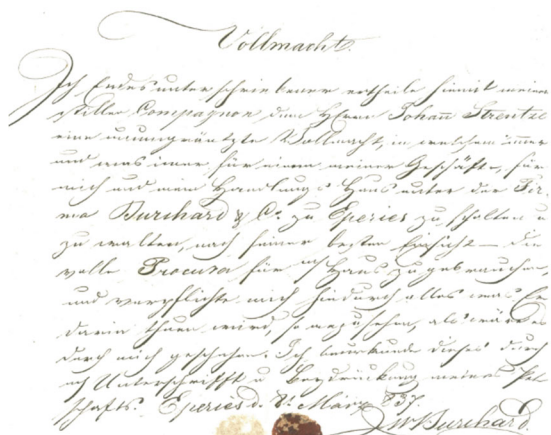 Vollmacht.
Ich Endesunterschriebener ertheile hiemit meinem
stillen Compagnon dem Herrn Johan Strentze
eine uneingeränzte Vollmacht, in welchen immer
und was imer für einem meiner Geschäfte, für
mich und mein Handlungs Haus unter der Fir-
ma Burchard & Co. zu Eperies zu schalten u
zu walten, nach seiner besten Einsicht — die
volle Procura für Haus zu gebrauchen,
und verpflichte mich hindurch alles was Er
darin thuen wird, so anzusehen, als wäre es
durch mich geschehen. Ich beurkunde dieses durch
Unterschrifft u Beydrückung meines Pet-
schafts. Eperies d. März 837.
Burchard